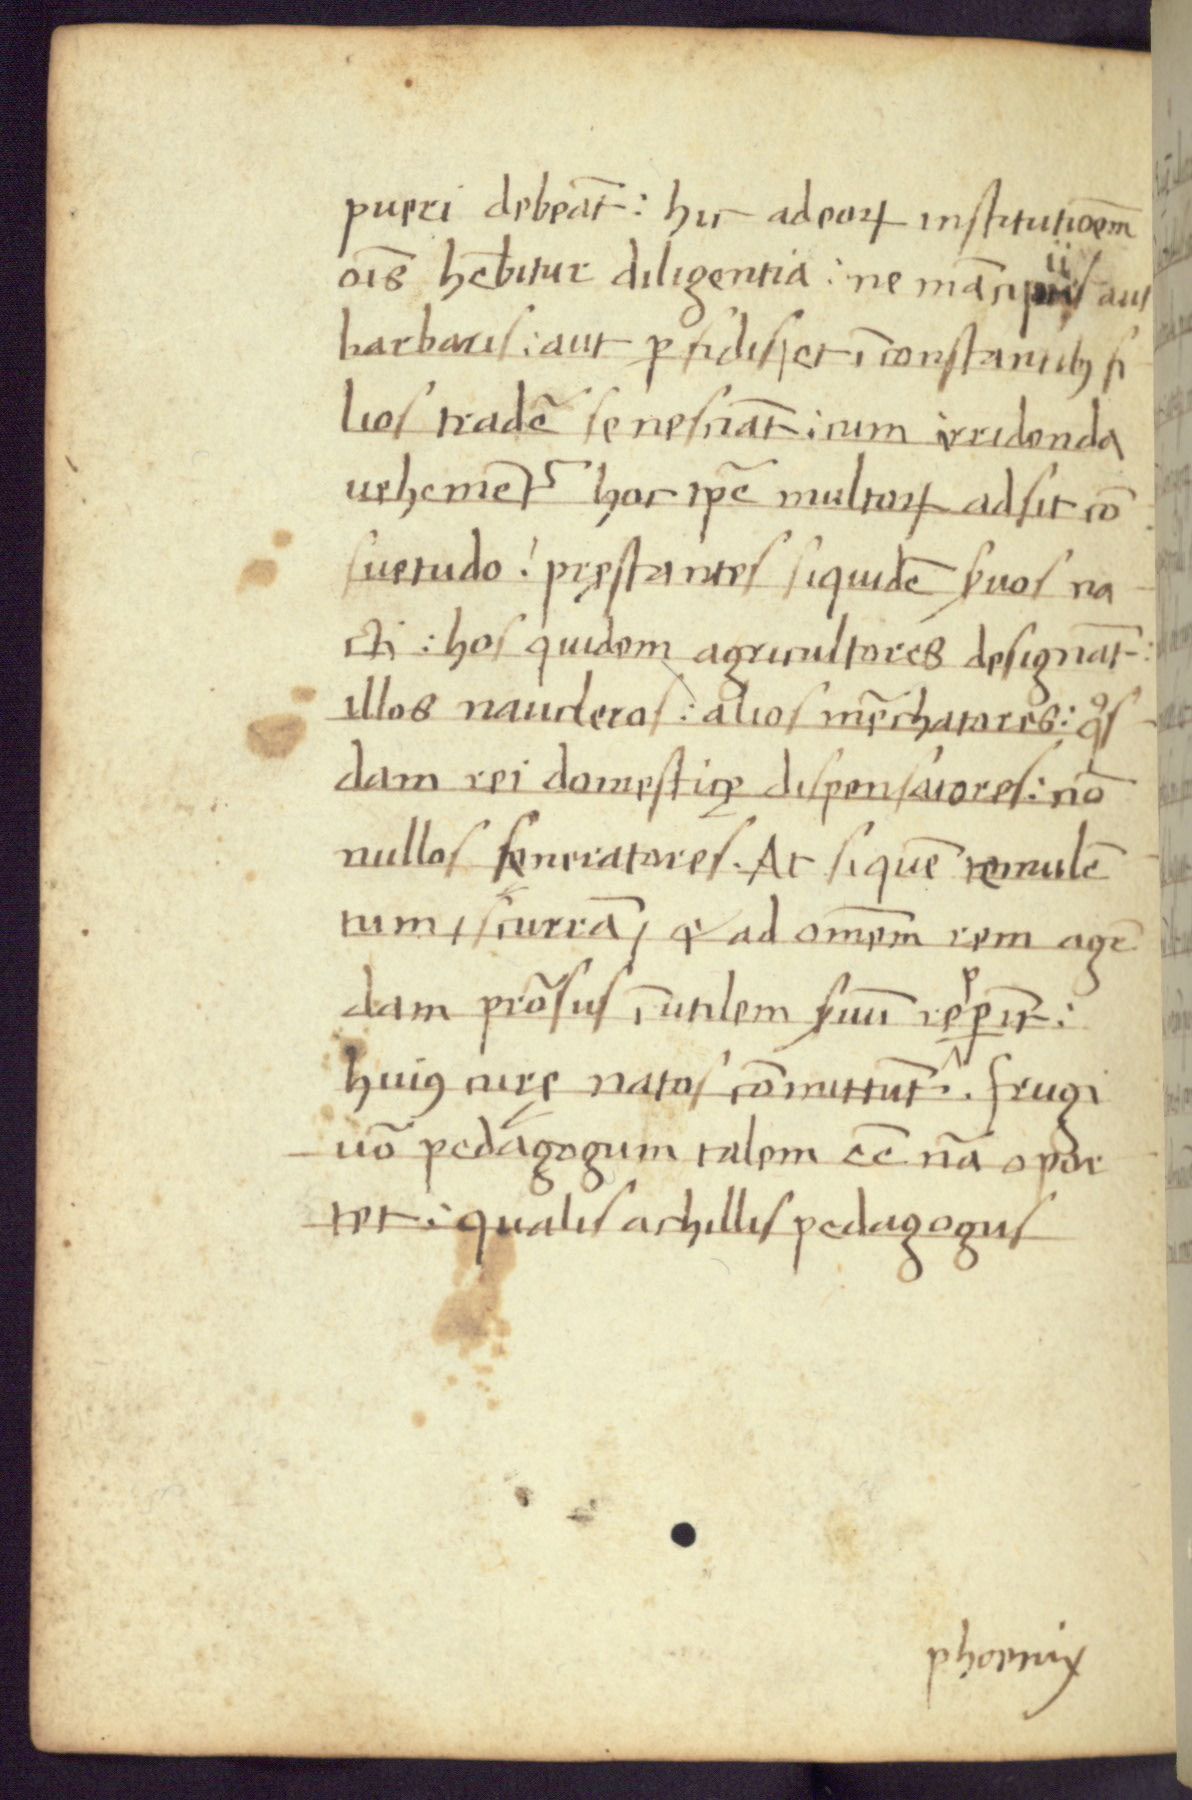 pueri debeãt: hic ad eoꝝ institutiõem
oı̃s hẽbitur diligentia: ne mãcipiis aut
barbaris: aut ꝑfidis, et ı̃constantibꝫ fi
lios tradẽ se nesciãt: cum irridenda
uehemẽt᷒ hoc tp̃e multoꝝ adsit cõ
suetudo! pręstantes siquidẽ ẜuos na
cti: hos quidem agricultores designãt:
illos naucleros: alios mẽrchatores: qͦs
dam rei domesticę dispensatores: nõ
nullos feneratores. At si quẽ temulẽ
tum, scurrã, & ad om̃em rem agẽ
dam prõsus ı̃utilem ẜuũ rep̲perı̃t:
huiꝰ curę natos cõmittũt. frugi
uõ pedagogum talem eẽ nã opor
tet: qualis achillis pedagogus
phoenix